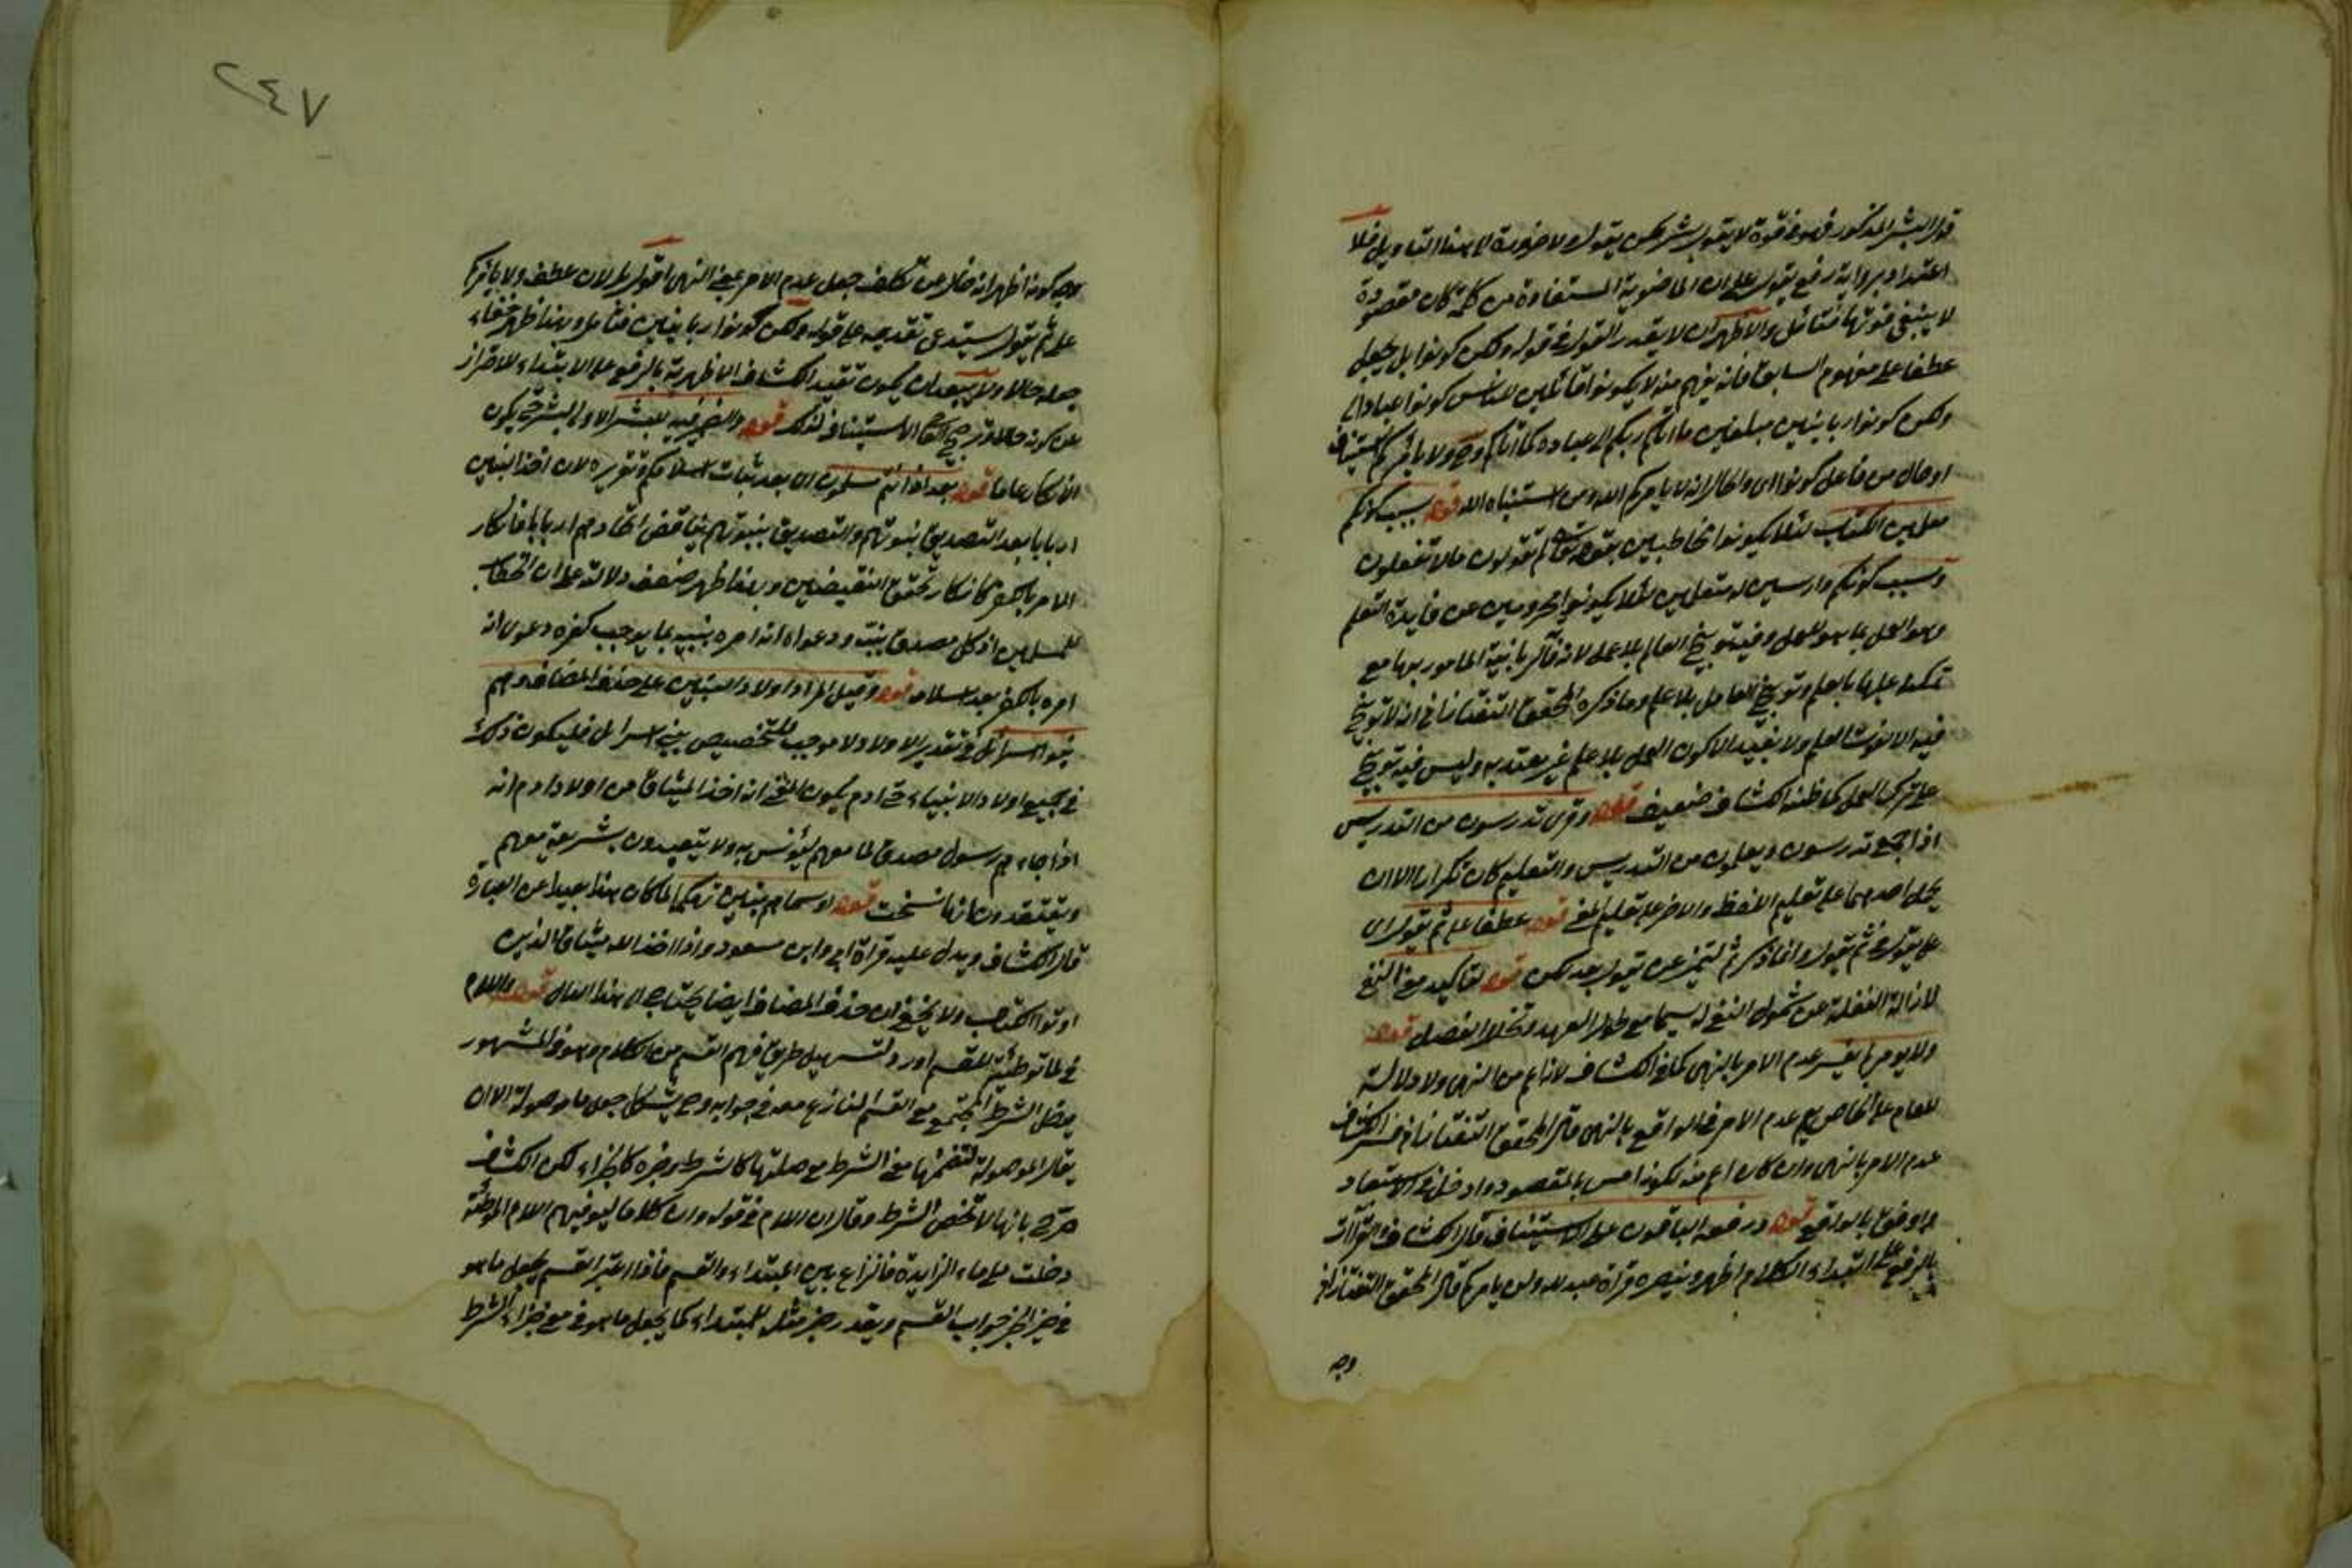 قول البشر المذكور فهو في قوة لا يقول بشر لكن يقول ولا ضرورة الى هذا التأويل فلا
اعتداد برواية رفع يقول على ان الماضوية المستفادة من كلمة كان مقصودة
لا ينبغي فوتها فتأمل والاظهر ان لا يقدر القول في قوله ولكن كونوا بل يجعل
عطفا على مفهوم السابق فانه يفهم منه لا يكونوا قائلين للناس كونوا عبادا لي
ولكن كونوا ربانيين مبلغين ما اتاكم ربكم الى عباده كما اتاكم وح ولا يأمركم استيناف
او حال من فاعل كونوا اي والحال انه لا يامركم الله ومن استنباه الله قوله بسبب كونكم
معلمين الكتاب لئلا يكونوا مخاطبين بقوله تعالى لم تقولون ما لا تفعلون
وبسبب كونكم دارسين له متعلمين لئلا يكونوا محرومين عن فايدة التعلم
وهو العمل بما هو للعمل وفيه توبيخ العالم بلا عمل لانه فات الربانية المامور بها مع
تمكنه عليها بالعلم وتوبيخ العامل بلا علم وما ذكره المحقق التفتازاني انه لا توبيخ
فيه الا لفوت العلم ولا يفيد الا كون العمل بلا علم غير معتد به وليس فيه توبيخ
على ترك العمل كما ظنه الكشاف ضعيف قوله وقرئ تدرسون من التدريس
اذا جمع تدرسون ويعلمون من التدريس والتعليم كان تكرارا الا ان
يحمل احدهما على تعليم اللفظ والاخر على تعليم المعنى قوله عطفا على ثم يقول اي
على يقول في ثم يقول وانما ذكر ثم لتميز عن يقول بعد لكن قوله لتاكيد معنى النفي
لازالة الغفلة عن شمول النفي له سيما مع طول العهد وتخلل الفصل قوله
ولا يومر بان يفسر عدم الامر بالنهي كما في الكشاف لانه اعم من النهي ولا دلالة
للعام على الخاص مع عدم الامر في الواقع بالنهي قال المحقق التفتازاني فسر الكشاف
عدم الامر بالنهي وان كان اعم منه لكونه امس بالمقصود وادخل في الاستبعاد
واوفق بالواقع قوله ورفعه الباقون على الاستيناف قال الكشاف القراآت
بالرفع على ابتداء الكلام اظهر وينصره قراءة عبد الله ولن يامركم قال المحقق التفتازاني
وجه
٢٤٧
وجه كونه اظهر انه خلا عن تكلف جعل عدم الامر بمعنى النهي اقول ولان عطف ولا يأمركم
على ثم يقول يستدعي تقديمه على قوله ولكن كونوا ربانيين فتأمل وبهذا ظهر خفاء
جعله حالا ولا يبعد ان يكون تقييد الكشاف الاظهرية بالرفع على الابتداء للاحتراز
عن كونه حالا وترجيح القاضي الاستيناف لذلك قوله والضمير فيه للبشر الاولى لبشر حتى يكون
الانكار عاما قوله بعد اذ انتم مسلمون اي بعد ثبات اسلامكم وتقرره لان اخذ النبيين
اربابا بعد التصديق بنبوتهم والتصديق بنبوتهم يناقض اتخاذهم اربابا فانكار
الامر بالكفر كانكار تحقق النقيضين وبهذا ظهر ضعف دلالته على ان الخطاب
للمسلمين اذ كل مصدق بنبي ودعواه انه امره بنبيه بما يوجب كفره دعوى انه
امره بالكفر بعد اسلامه قوله وقيل المراد اولاد النبيين على حذف المضاف وهم
بنوا اسرائيل في تقدير الاولاد ولا موجب للتخصيص ببني اسرائيل فليكون ذلك
في جميع اولاد الانبياء حتى ادم يكون المعنى انه اخذ الميثاق من اولاد ادم انه
اذا جاءهم رسول مصدق لما معهم ليؤمنن به ولا يتعبدون بشريعة معهم
ويعتقدون انها نسخت قوله او سماهم نبيين تهكما لما كان هذا بعيدا عن العبارة
قال الكشاف ويدل عليه قراءة ابي وابن مسعود واذ اخذ الله ميثاق الذين
اوتوا الكتاب ولا يخفى ان حذف المضاف ايضا يحتاج الى هذا القال قوله واللام
في لما توطئة للقسم اورد لتسهيل طريق فهم القسم من الكلام وهو في المشهور
يدخل الشرط المجتمع مع القسم المنازع معه في جوابه وح يشكل جعل ما موصولة الا ان
يقال الموصولة لتضمنها معنى الشرط مع صلتها كالشرط وخبره كالجزاء لكن الكشاف
صرح بانها لا تخص الشرط وقال ان اللام في قوله وان كلا لما ليوفينهم اللام الموطئة
دخلت على ما الزايدة فانزاع بين المبتداء والقسم فاذا اعتبر القسم يجعل ما هو
في حيز الخبر جواب القسم ويقدر خبر مثله للمبتداء كما يجعل ما هو في معنى جزاء الشرط